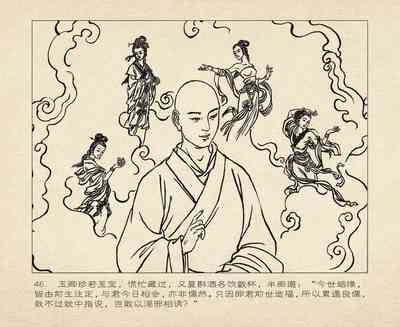 46. 玉卿珍若至宝，慌忙藏过，又复斟酒各饮数杯，半痴道：“今世姻缘，
皆由前生注定，与君今日相会，亦非偶然。只因郎君前世造福，所以累遇良偶，
我不过就中指说，岂敢以淫邪相诱？”